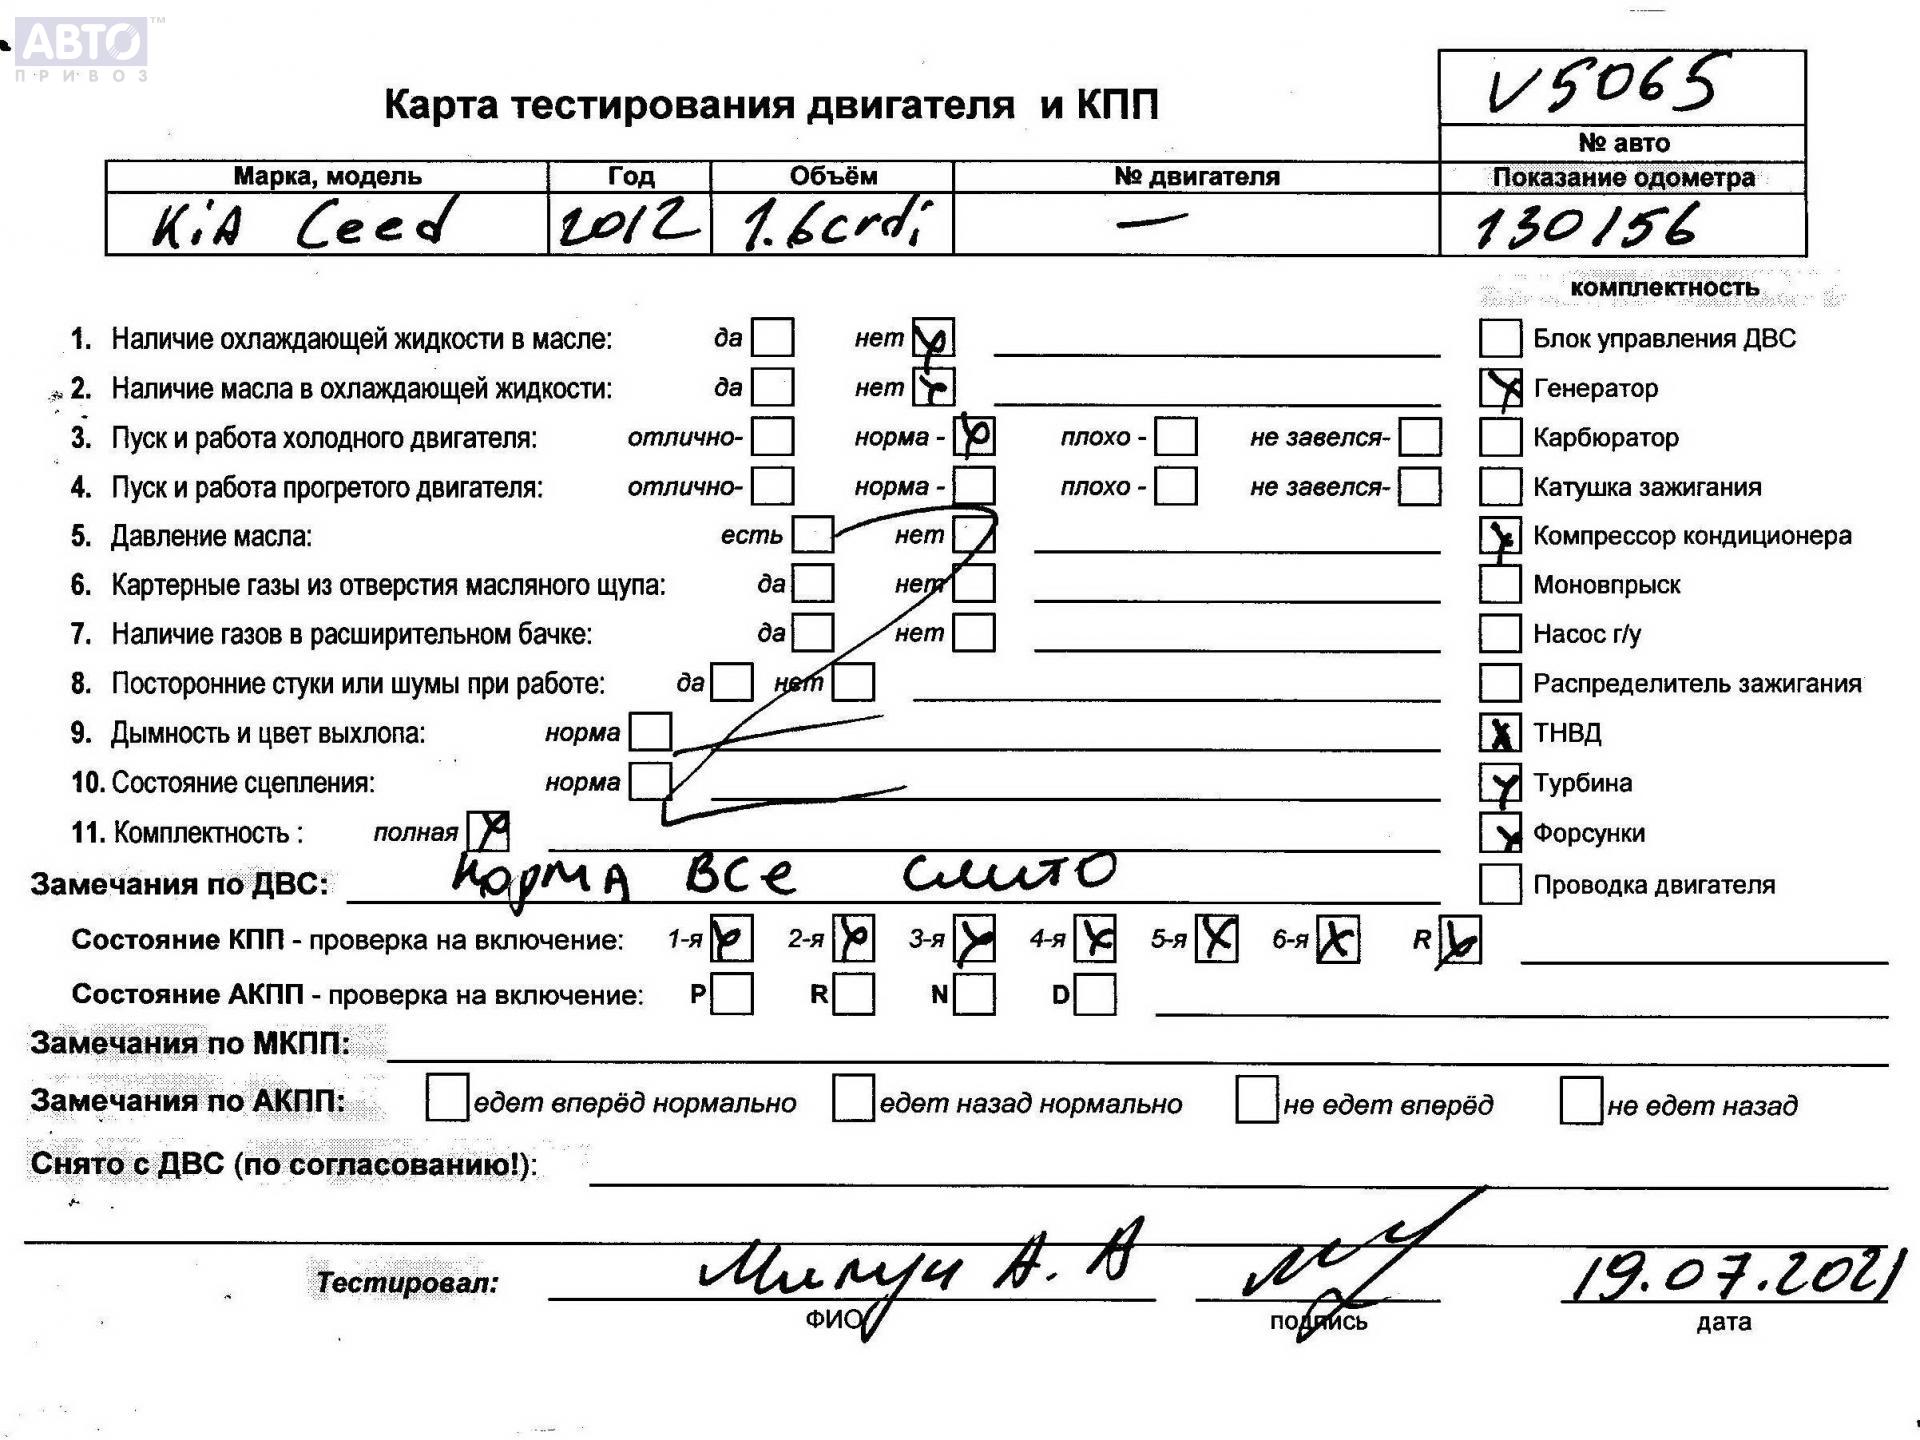 АВТО™
ПРИВОЗ
V5065
Карта тестирования двигателя и КПП
№ авто
Марка, модель Год Объём № двигателя Показание одометра
KiA Ceed 2012 1.6crdi — 130156
комплектность
1. Наличие охлаждающей жидкости в масле: да нет Блок управления ДВС
2. Наличие масла в охлаждающей жидкости: да нет Генератор
3. Пуск и работа холодного двигателя: отлично- норма - плохо - не завелся- Карбюратор
4. Пуск и работа прогретого двигателя: отлично- норма - плохо - не завелся- Катушка зажигания
5. Давление масла: есть нет Компрессор кондиционера
6. Картерные газы из отверстия масляного щупа: да нет Моновпрыск
7. Наличие газов в расширительном бачке: да нет Насос г/у
8. Посторонние стуки или шумы при работе: да нет Распределитель зажигания
9. Дымность и цвет выхлопа: норма ТНВД
10. Состояние сцепления: норма Турбина
11. Комплектность : полная Форсунки
Замечания по ДВС: норма все слито Проводка двигателя
Состояние КПП - проверка на включение: 1-я 2-я 3-я 4-я 5-я 6-я R
Состояние АКПП - проверка на включение: P R N D
Замечания по МКПП:
Замечания по АКПП: едет вперёд нормально едет назад нормально не едет вперёд не едет назад
Снято с ДВС (по согласованию!):
Тестировал: А. А 19.07.2021
ФИО подпись дата